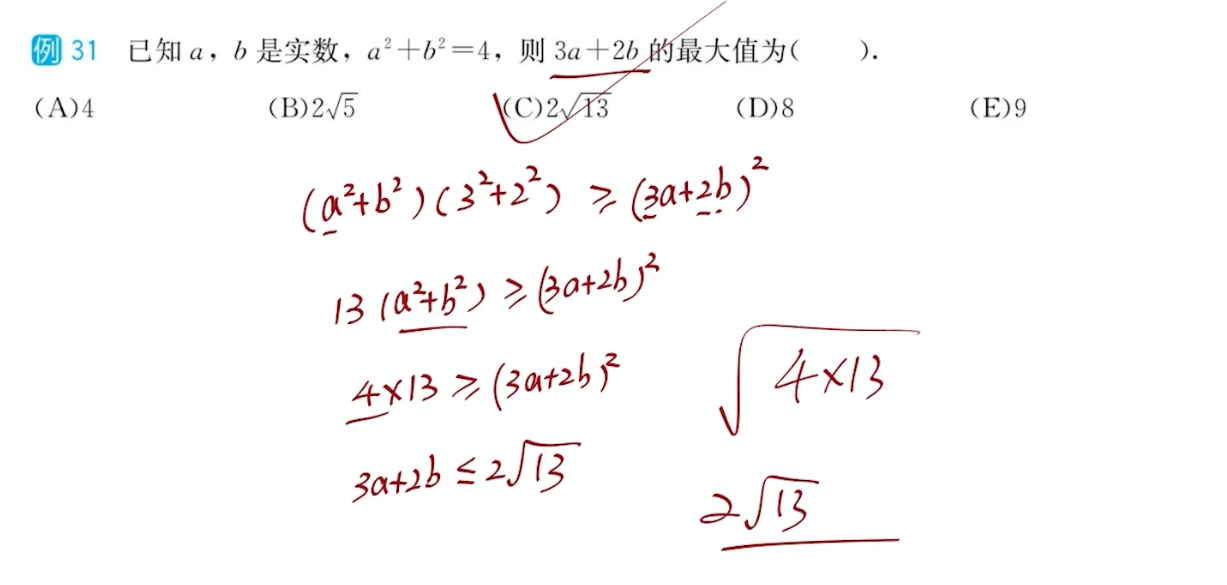 例 31 已知 a，b 是实数，a²+b²=4，则 3a+2b 的最大值为(　　).
(A)4 (B)2√5 (C)2√13 (D)8 (E)9
(a²+b²)(3²+2²) ≥ (3a+2b)²
13(a²+b²) ≥ (3a+2b)²
4×13 ≥ (3a+2b)²
√4×13
3a+2b ≤ 2√13
2√13